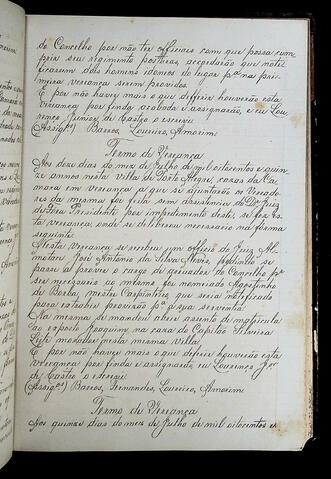 do Concelho por não ter officiaes com que possa cum
prir seu regimento posturas, acordarão que noti
ficarem dois homens idoneos do lugar pª na pri
meira vereança serem providos.
E por não haver mais o que differir houverão esta
vereança por finda acabada e assignarão, eu Lou
renço Junior de Castro o escrevi
(Assigos) Barros, Loureiro, Amorim
Termo de Vereança
Aos doze dias do mez de Julho de mil oitocentos e quin
ze annos nesta villa de Porto Alegre, cazas da Ca
mara em vereança a que se ajuntarão os Vereado
res da mesma foi feita sem assistencia do Dr Juiz
de Fora Presidente por impedimento deste, se fez es
ta vereança, onde se deliberou necessario na forma
seguinte
Nesta Vereança se recebeu um officio do Juiz Al
motacé José Antonio da Silva Neves pedindo se
passe a prover o cargo de guardador do Concelho pr
ser necessario ao mesmo foi nomeado Agostinho
da Borba, mestre Carpinteiro que seria notificado
para exhibir provisão pª a sua serventia
Na mesma se mandou abrir assento de matricula
ao exposto Joaquim na caza do Capitão Silveira
Luis morador nesta mesma villa
E por não haver mais o que deferir houverão esta
vereança por finda e assignarão eu Lourenço Jor
de Castro o escrevi
(Assigos) Barros, Fernandes, Loureiro, Amorim
Termo de Vereança
Aos quinze dias do mez de Julho de mil oitocentos e